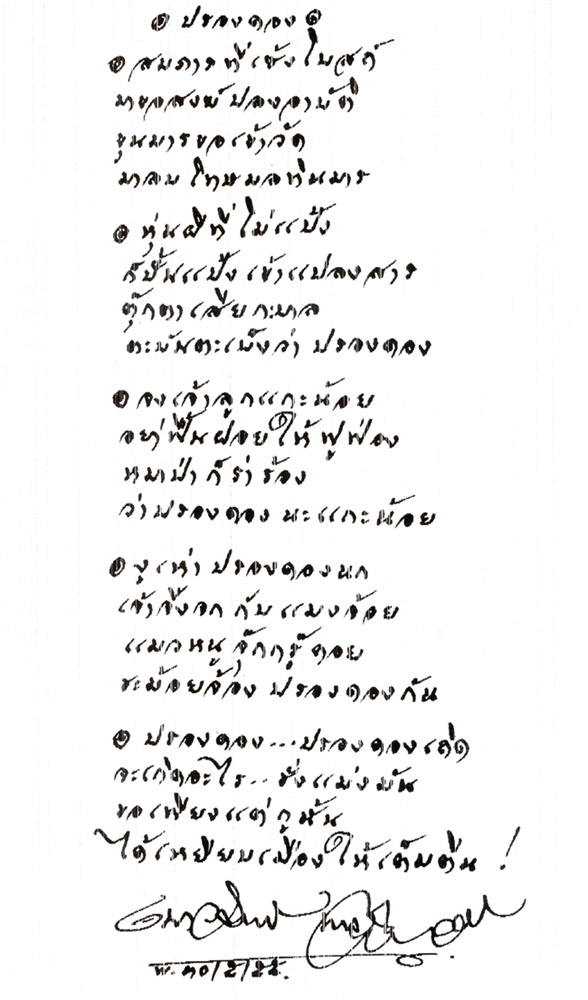 ๏ ปรองดอง ๏
๏ สมภารที่เซ้งโบสถ์
มาขอสงฆ์ปลงอาบัติ
ขุนมารขอเข้าวัด
มาลบโทษมลทินมาร
๏ หุ่นผีที่ไม่แป้ง
ก็ปั้นแป้งเข้าแปลงสาร
ตุ๊กตาเสียกบาล
ตะบันตะเบ็งว่า ปรองดอง
๏ จงเจ้าลูกแกะน้อย
อย่าฟื้นฝอยให้ฟูฟ่อง
หมาป่าก็ร่ำร้อง
ว่าปรองดอง นะแกะน้อย
๏ งูเห่า ปรองดองนก
เจ้าจิ้งจก กับแมงจ้อย
แมวหนู จุ๊กกรู๊คอย
ชะม้อยจ้อง ปรองดองกัน
๏ ปรองดอง...ปรองดองเถิด
จะเกิดอะไร...ชั่งแม่งมัน
ขอเพียงแต่กูนั้น
ได้เหยียบเมืองให้เต็มตีน !
เนาวรัตน์ พงษ์ไพบูลย์
พ. ๓๐/๒/๕๕.